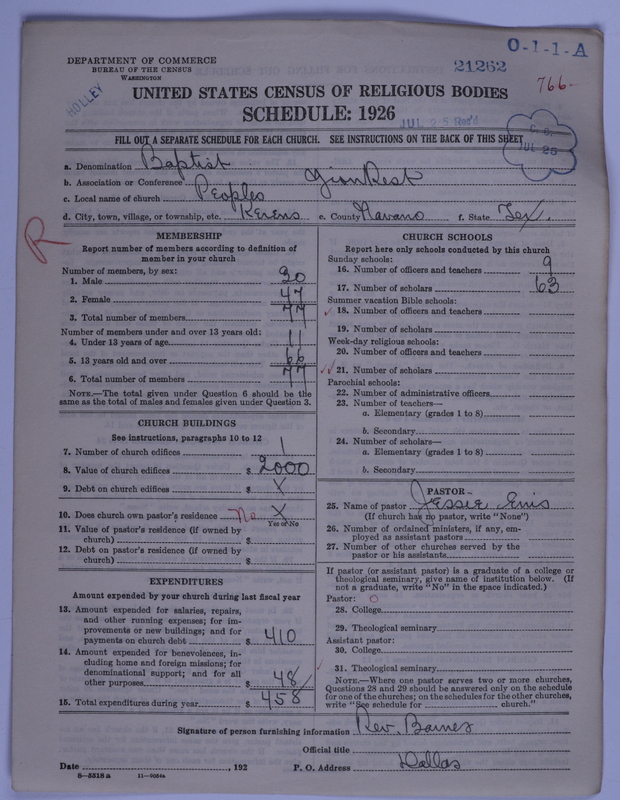 O-1-1-A
DEPARTMENT OF COMMERCE
BUREAU OF THE CENSUS
WASHINGTON
21262
766-
HOLLEY
UNITED STATES CENSUS OF RELIGIOUS BODIES
SCHEDULE: 1926
JUL 25 Rec'd
JUL 25
FILL OUT A SEPARATE SCHEDULE FOR EACH CHURCH. SEE INSTRUCTIONS ON THE BACK OF THIS SHEET
a. Denomination Baptist
b. Association or Conference Zion Rest
c. Local name of church Peoples
d. City, town, village, or township, etc. Kerens e. County Navaro f. State Tex.
R
MEMBERSHIP
Report number of members according to definition of
member in your church
Number of members, by sex:
1. Male 30
2. Female 47
3. Total number of members 77
Number of members under and over 13 years old:
4. Under 13 years of age 11
5. 13 years old and over 66
6. Total number of members 77
NOTE.—The total given under Question 6 should be the
same as the total of males and females given under Question 3.
CHURCH BUILDINGS
See instructions, paragraphs 10 to 12
7. Number of church edifices 1
8. Value of church edifices $ 2000
9. Debt on church edifices $ X
10. Does church own pastor's residence No X
Yes or No
11. Value of pastor's residence (if owned by
church) $
12. Debt on pastor's residence (if owned by
church) $
EXPENDITURES
Amount expended by your church during last fiscal year
13. Amount expended for salaries, repairs,
and other running expenses; for im-
provements or new buildings; and for
payments on church debt $ 410
14. Amount expended for benevolences, in-
cluding home and foreign missions; for
denominational support; and for all
other purposes $ 48
15. Total expenditures during year $ 458
CHURCH SCHOOLS
Report here only schools conducted by this church
Sunday schools:
16. Number of officers and teachers 9
17. Number of scholars 63
Summer vacation Bible schools:
18. Number of officers and teachers
19. Number of scholars
Week-day religious schools:
20. Number of officers and teachers
21. Number of scholars
Parochial schools:
22. Number of administrative officers
23. Number of teachers—
a. Elementary (grades 1 to 8)
b. Secondary
24. Number of scholars—
a. Elementary (grades 1 to 8)
b. Secondary
PASTOR
25. Name of pastor Jessie Enis
(If church has no pastor, write "None")
26. Number of ordained ministers, if any, em-
ployed as assistant pastors
27. Number of other churches served by the
pastor or his assistants
If pastor (or assistant pastor) is a graduate of a college or
theological seminary, give name of institution below. (If
not a graduate, write "No" in the space indicated.)
Pastor: O
28. College
29. Theological seminary
Assistant pastor:
30. College
31. Theological seminary
NOTE.—Where one pastor serves two or more churches,
Questions 28 and 29 should be answered only on the schedule
for one of the churches; on the schedules for the other churches,
write "See schedule for church."
Signature of person furnishing information Rev. Barnes
Official title
Date , 192 P. O. Address Dallas
8-5518a 11-9034a